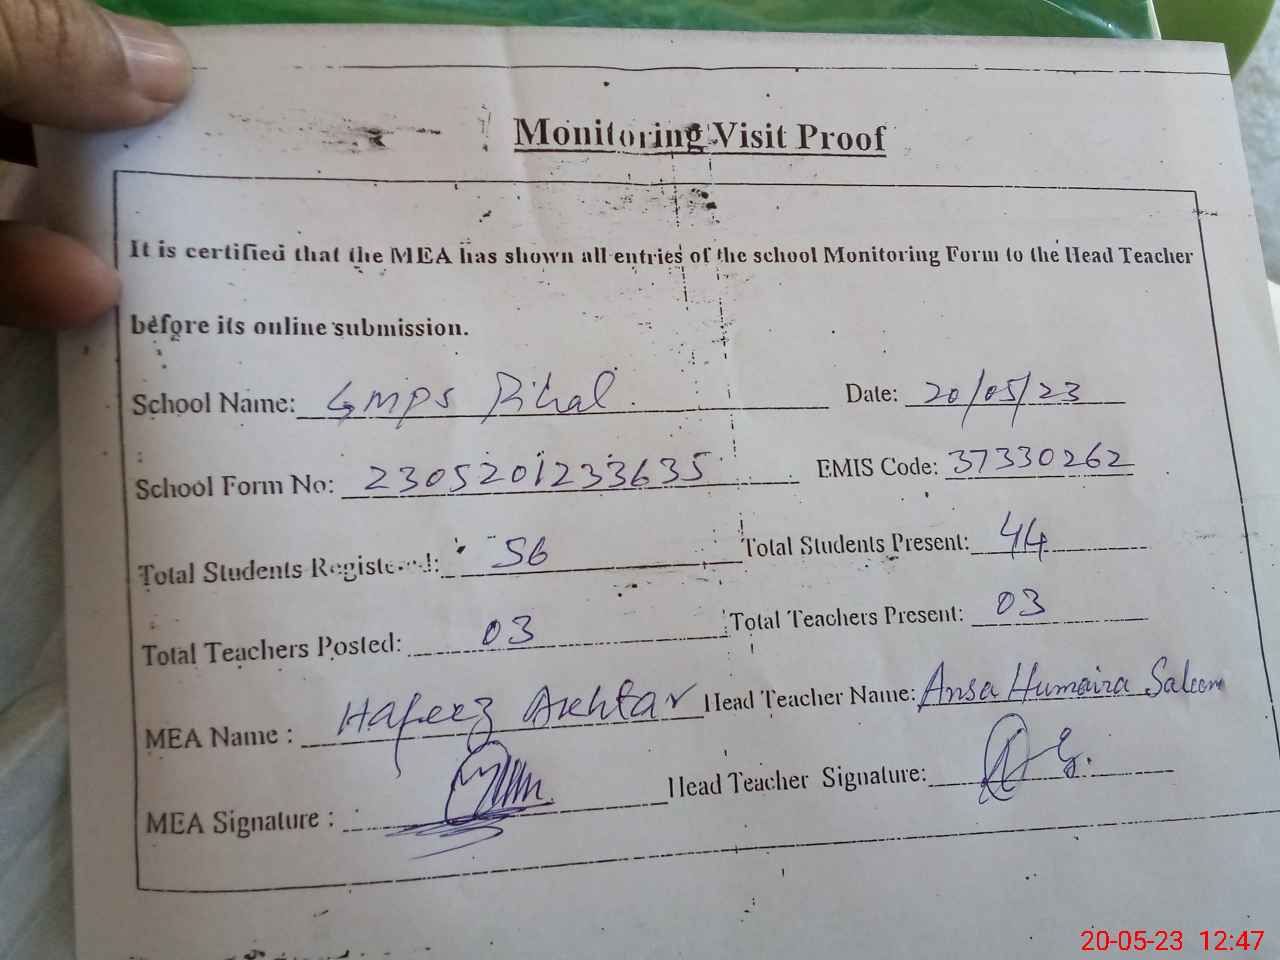 Monitoring Visit Proof
It is certified that the MEA has shown all entries of the school Monitoring Form to the Head Teacher
before its online submission.
School Name: GMPS Rihal. Date: 20/05/23
School Form No: 2305201233635 EMIS Code: 37330262
Total Students Registered: 56 Total Students Present: 44
Total Teachers Posted: 03 Total Teachers Present: 03
MEA Name : Hafeez Akhtar Head Teacher Name: Ansa Humaira Saleem
MEA Signature : Head Teacher Signature:
20-05-23 12:47